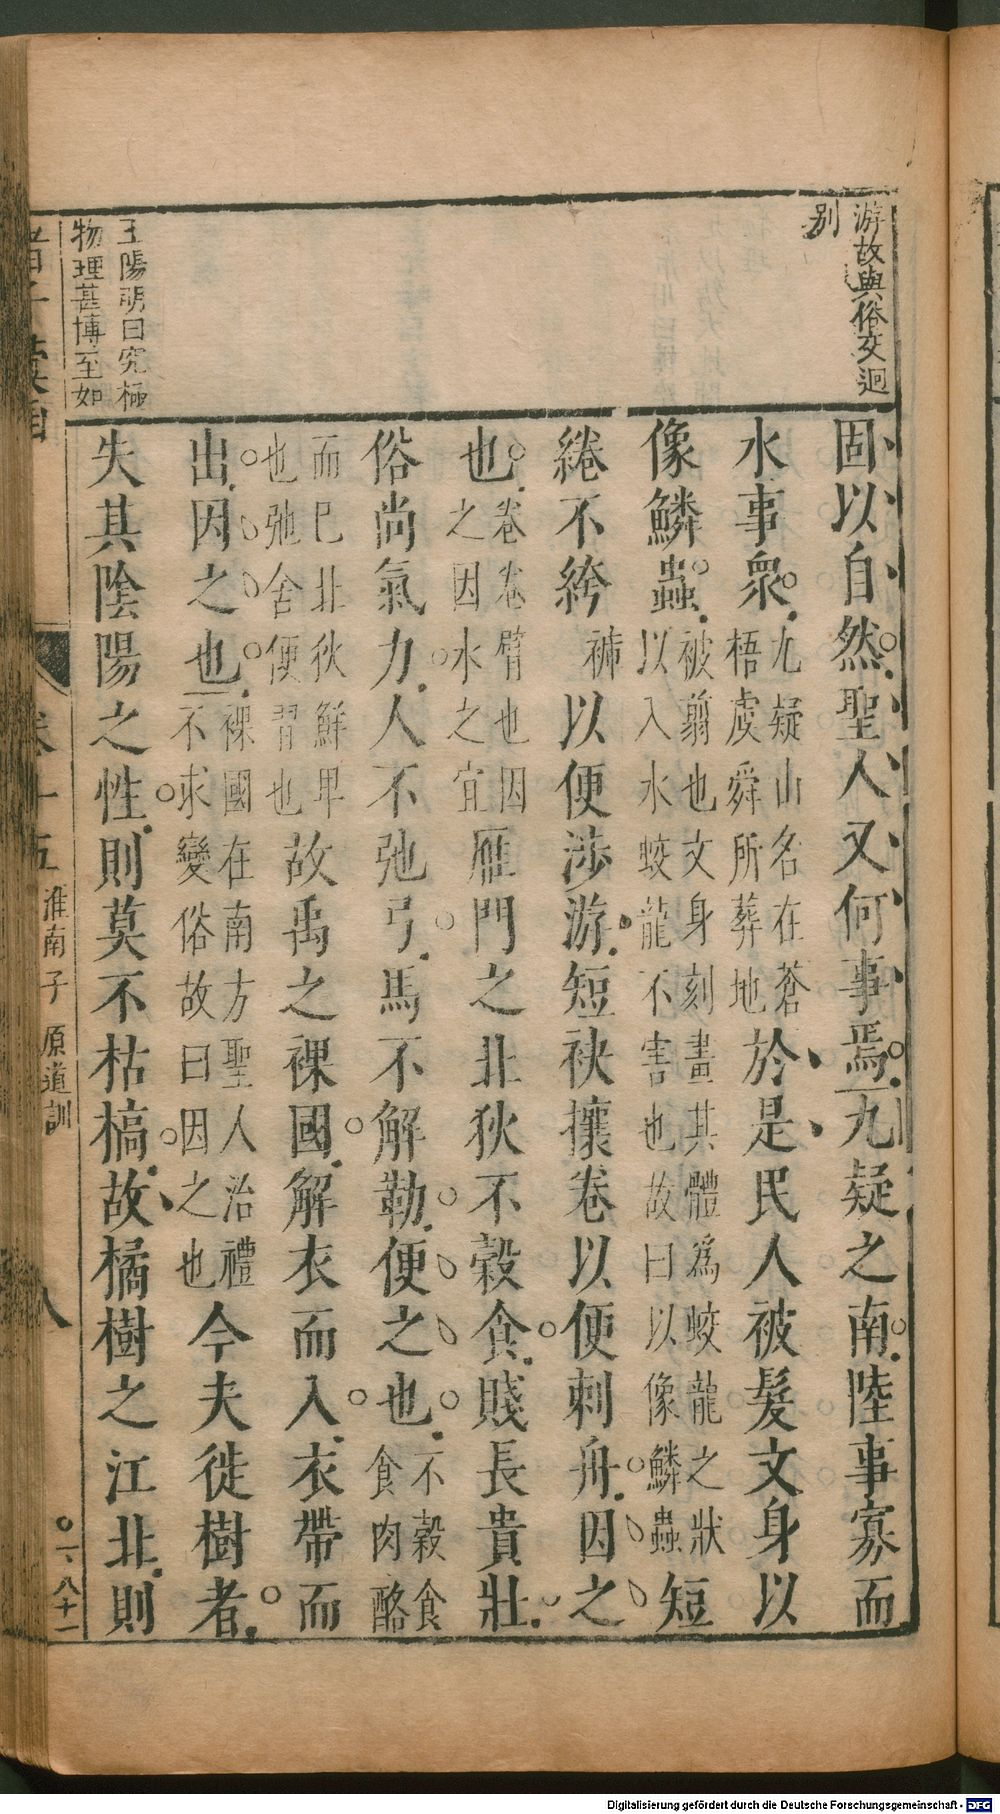 游故與俗交迥
別
王陽明曰究極
物理甚博至如
固以自然聖人又何事焉九疑之南陸事寡而
水事衆九疑山名在蒼梧虔舜所葬地於是民人被髮文身以
像鱗蟲被翦也文身刻畫其體爲蛟龍之狀以入水蛟龍不害也故曰以像鱗蟲短
綣不絝褲以便涉游短袂攘卷以便刺舟因之
也卷卷臂也因之因水之宜雁門之北狄不穀食賤長貴壯
俗尚氣力人不弛弓馬不解勒便之也不穀食食肉酪
而巳北狄鮮卑也弛舍便習也故禹之裸國解衣而入衣帶而
出因之也裸國在南方聖人治禮不求變俗故曰因之也今夫徙樹者
失其陰陽之性則莫不枯槁故橘樹之江北則
卷十五 淮南子 原道訓 八 〇一、八十一
Digitalisierung gefördert durch die Deutsche Forschungsgemeinschaft - DFG